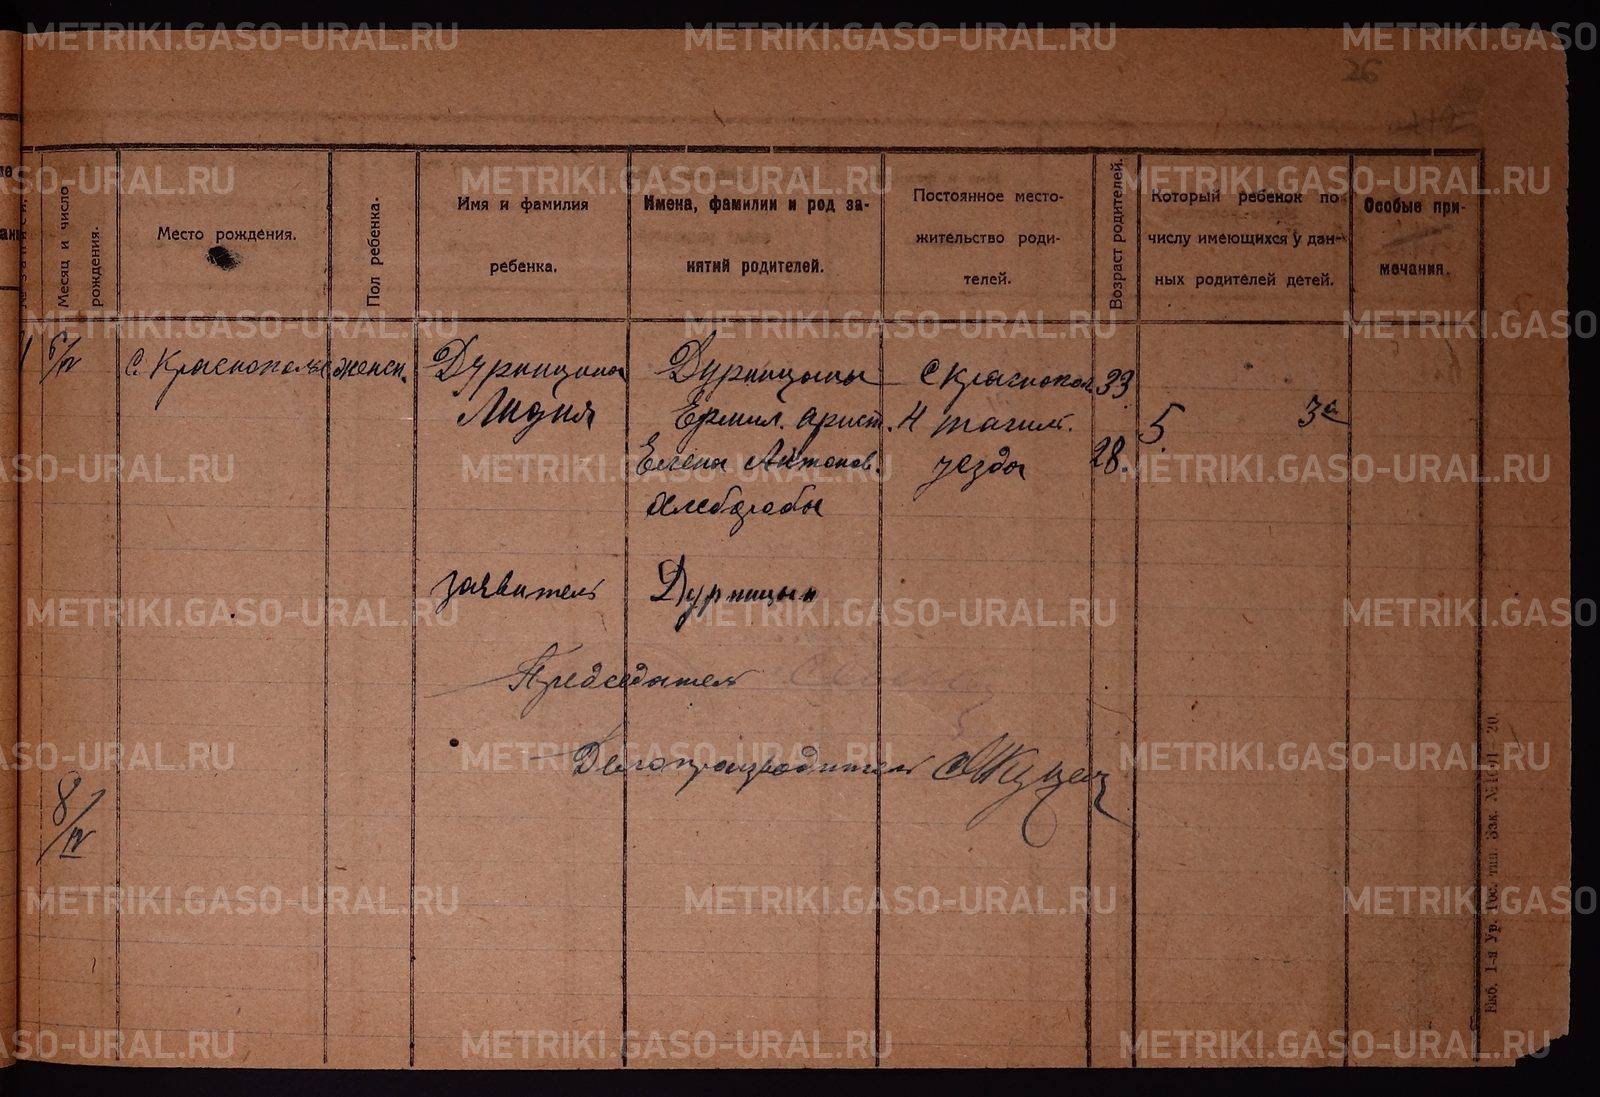 METRIKI.GASO-URAL.RU
METRIKI.GASO-URAL.RU
METRIKI.GASO
26
Месяц и число рождения.
Место рождения.
Пол ребенка.
Имя и фамилия ребенка.
Имена, фамилии и род за-
нятий родителей.
Постоянное место-
жительство роди-
телей.
Возраст родителей.
Который ребенок по
числу имеющихся у дан-
ных родителей детей.
Особые при-
мечания.
с. Краснополье
женск.
Дурницына
Лидия
Дурницыны
Ермил. Арист.
Елена Антонов.
хлеборобы
с Краснопол
Н тагил.
уезда
33
28.
5
заявитель Дурницын
Председатель
Делопроизводитель
8/IV
Екб. 1-я Ур. Гос. тип. Зак.